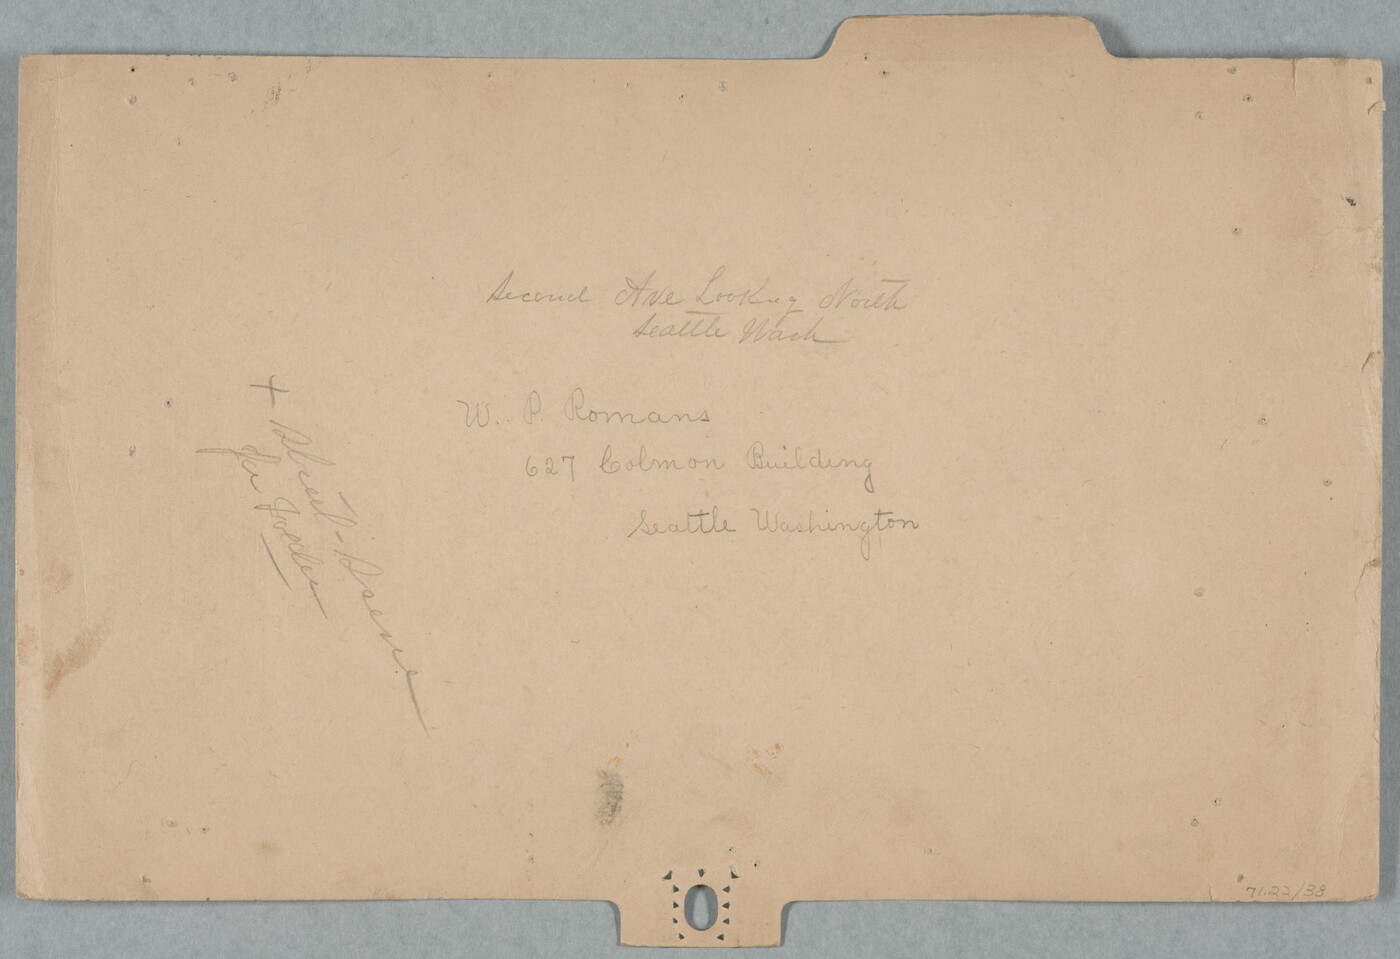 Second Ave Looking North
Seattle Wash
W. P. Romans
627 Colmon Building
Seattle Washington
+ Street-Scene
for
71.22/38